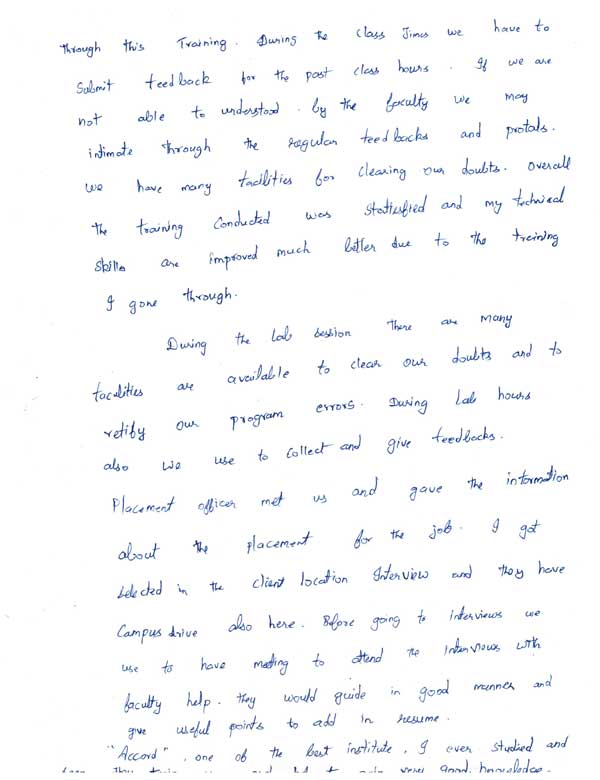 through this Training. During the class Times we have to
Submit feedback for the past class hours. If we are
not able to understood. by the faculty we may
intimate through the regular feedbacks and protals.
we have many facilities for clearing our doubts. overall
the training Conducted was Statiesfied and my technical
skills are improved much better due to the treining
I gone through.
During the Lab session there are many
faculities are available to clear our doubts and to
retify our program errors. During Lab hours
also we use to Collect and give feedbacks.
Placement officer met us and gave the information
about the placement for the job. I got
selected in the client location Interview and they have
Campus drive also here. Before going to interviews we
use to have meeting to attend the interviews with
faculty help. they would guide in good manner and
give useful points to add in resume.
"Accord", one of the best institute, I ever studied and
very good knowledge.